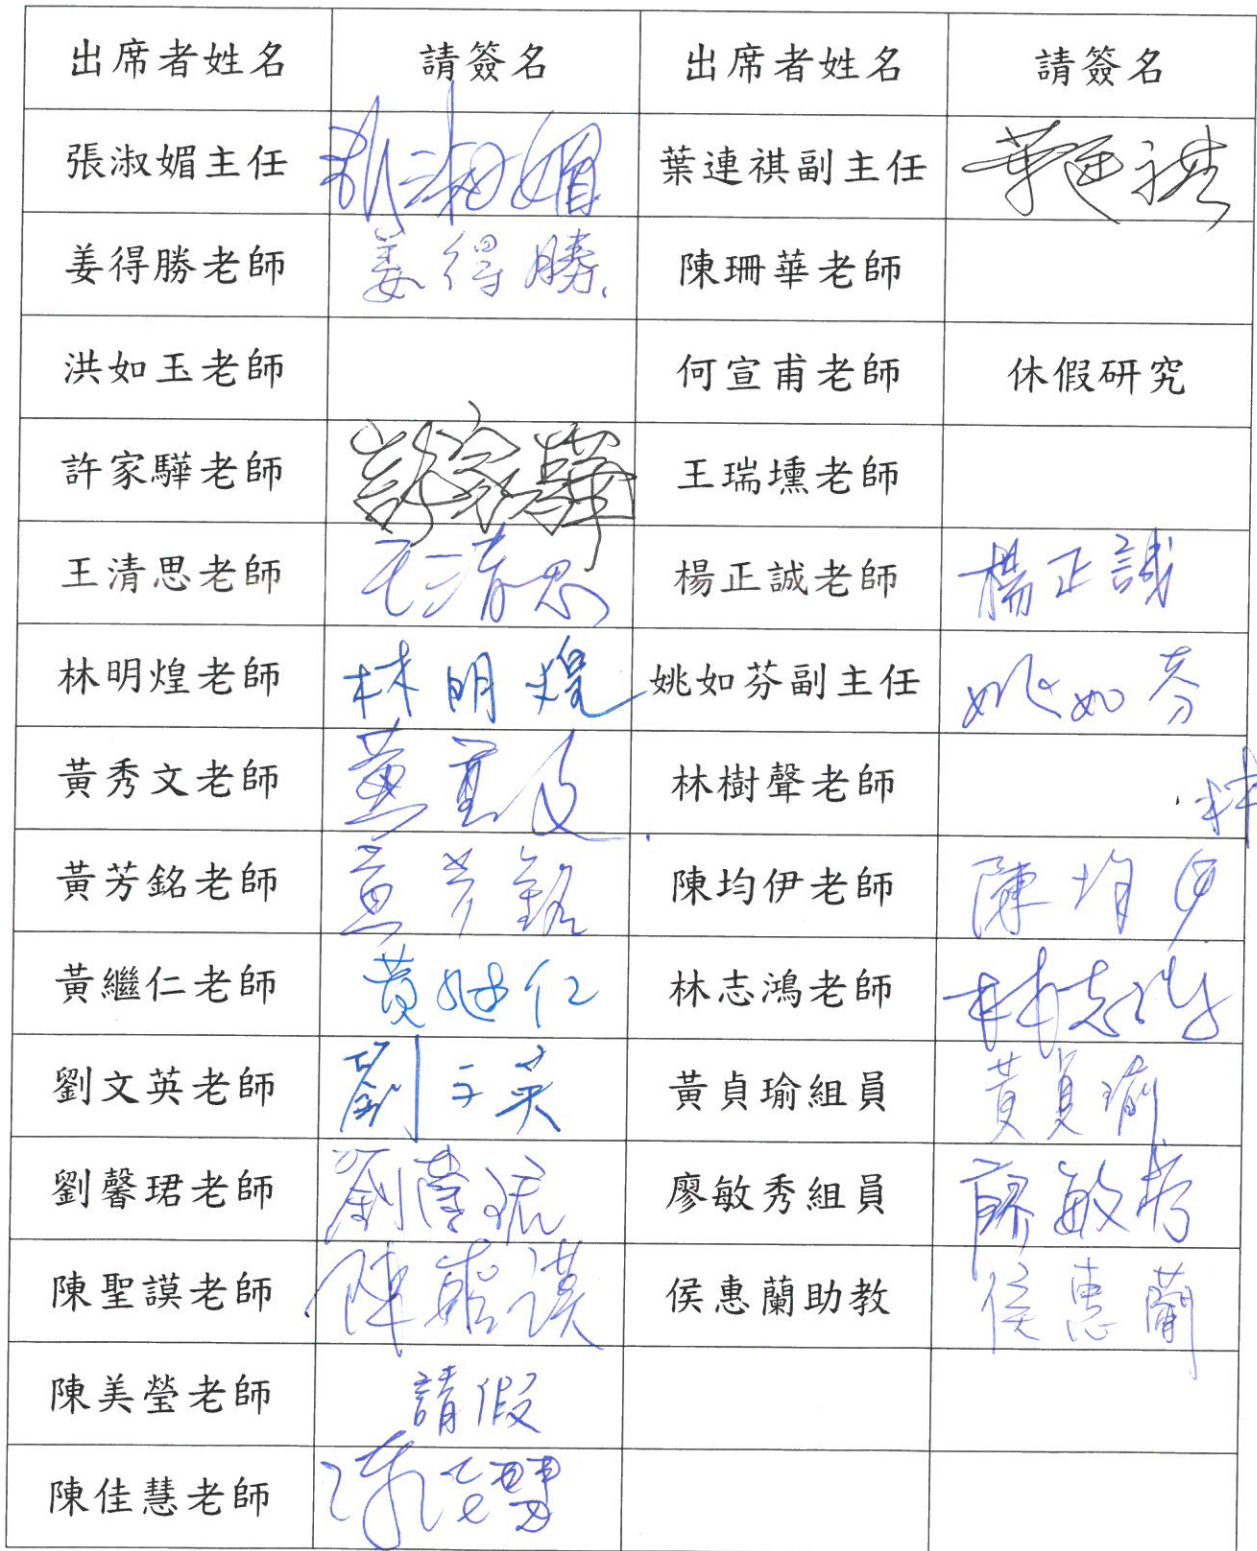 出席者姓名 請簽名 出席者姓名 請簽名
張淑媚主任 張淑媚 葉連祺副主任 葉連祺
姜得勝老師 姜得勝 陳珊華老師
洪如玉老師 何宣甫老師 休假研究
許家驊老師 許家驊 王瑞壎老師
王清思老師 王清思 楊正誠老師 楊正誠
林明煌老師 林明煌 姚如芬副主任 姚如芬
黃秀文老師 黃秀文 林樹聲老師 林
黃芳銘老師 黃芳銘 陳均伊老師 陳均伊
黃繼仁老師 黃繼仁 林志鴻老師 林志鴻
劉文英老師 劉文英 黃貞瑜組員 黃貞瑜
劉馨珺老師 劉馨珺 廖敏秀組員 廖敏秀
陳聖謨老師 陳聖謨 侯惠蘭助教 侯惠蘭
陳美瑩老師 請假
陳佳慧老師 陳佳慧